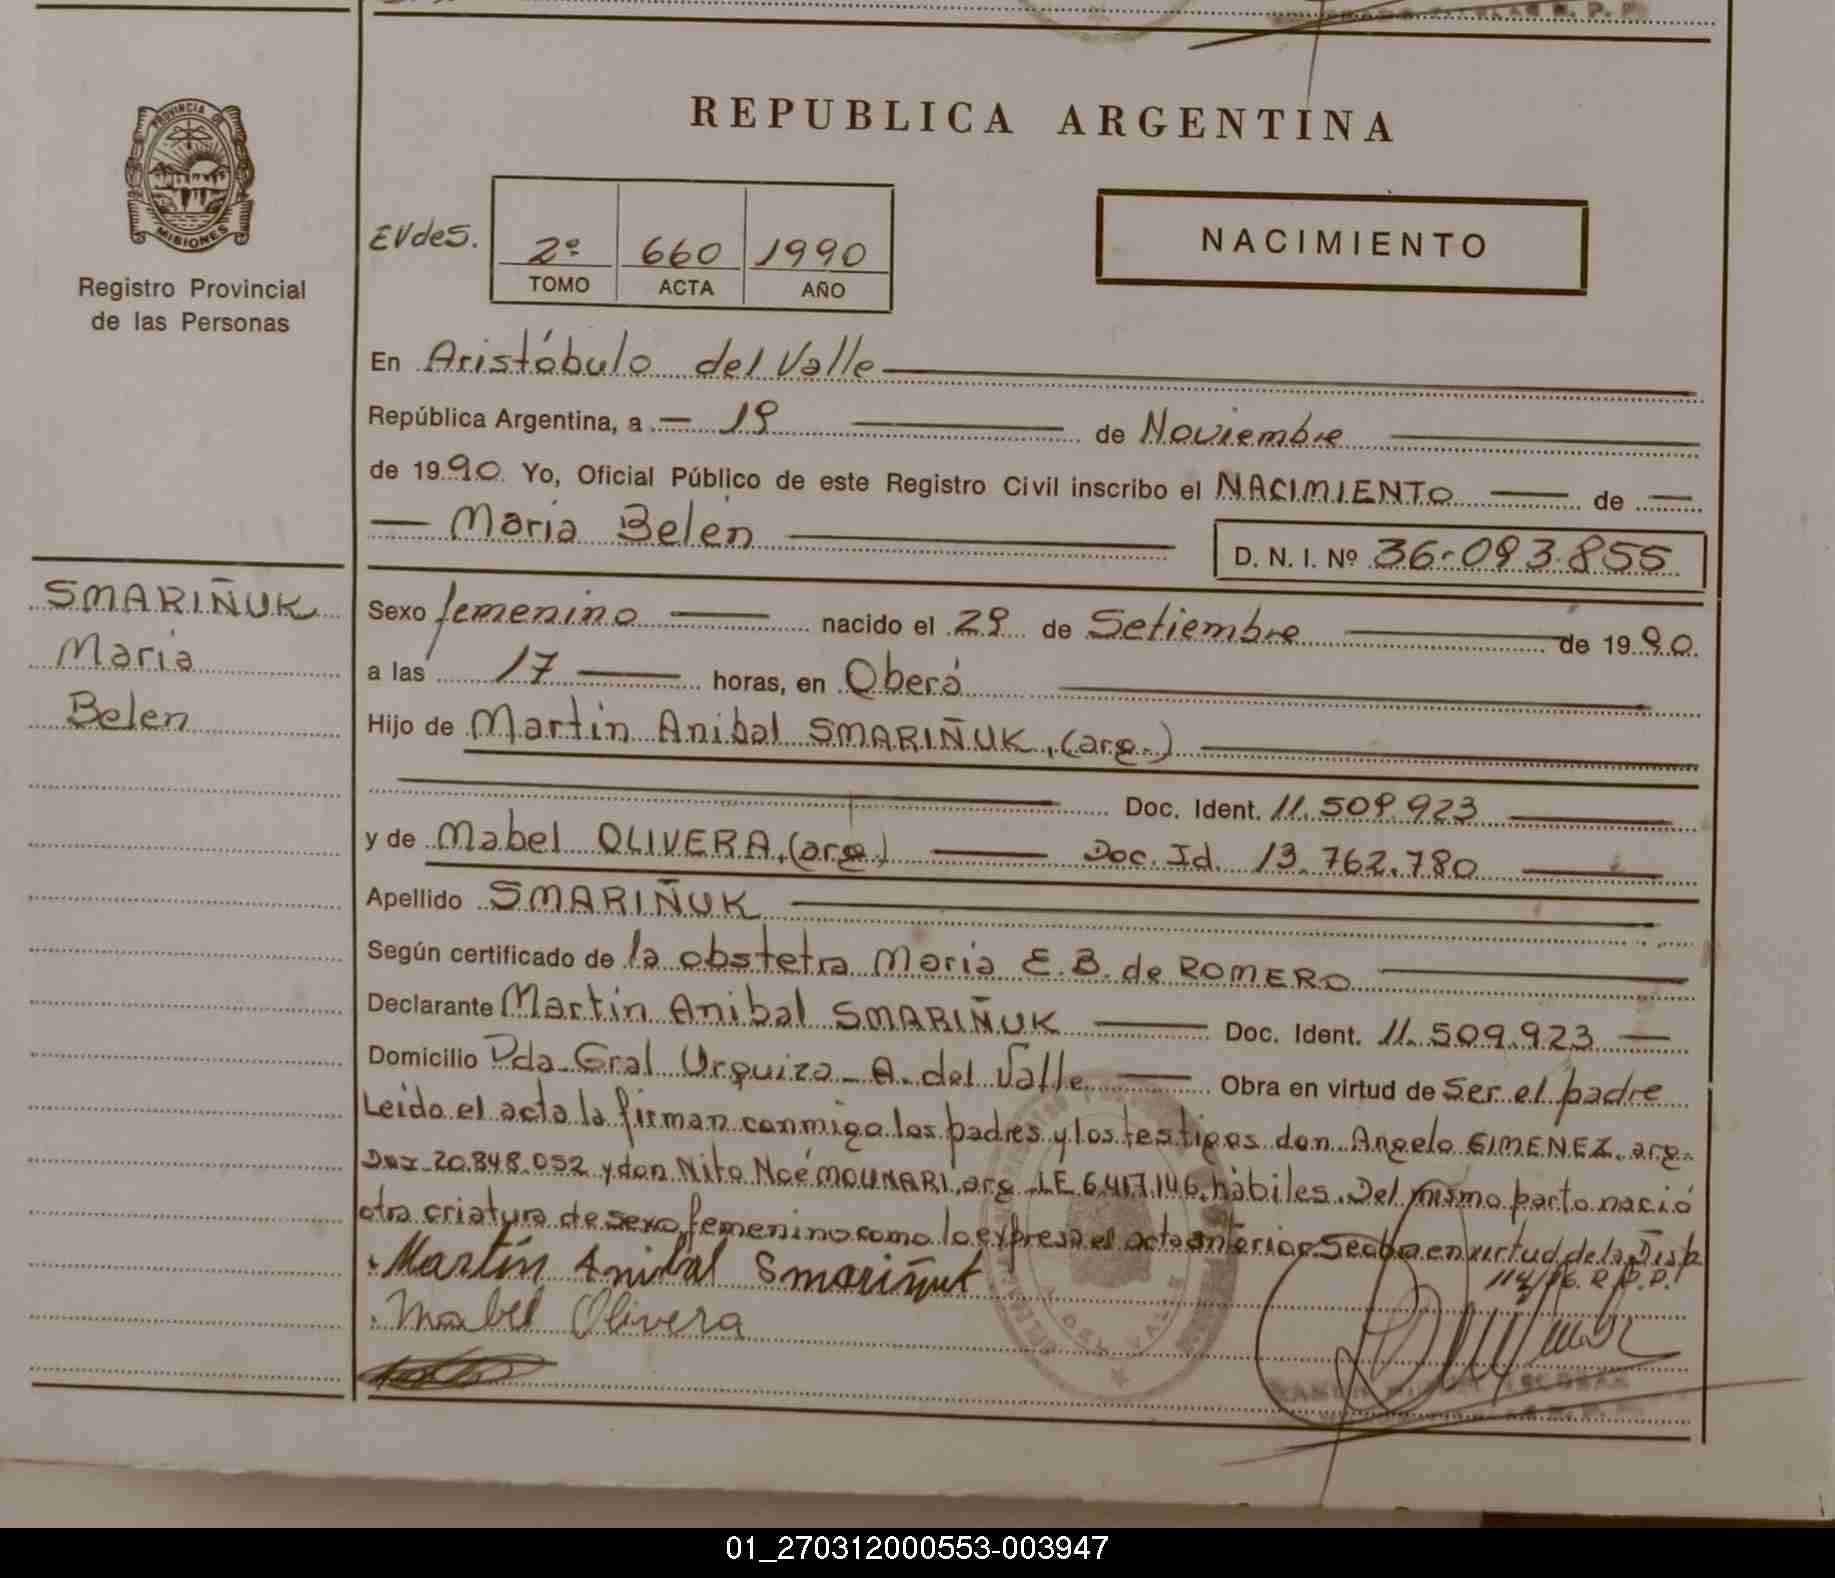 REPUBLICA ARGENTINA
PROVINCIA DE
MISIONES
Registro Provincial
de las Personas
EVdes.
2º 660 1990
TOMO ACTA AÑO
NACIMIENTO
En Aristóbulo del Valle
República Argentina, a 19 de Noviembre
de 1990. Yo, Oficial Público de este Registro Civil inscribo el NACIMIENTO de
Maria Belen
D. N. I. Nº 36.093.855
SMARIÑUK
Maria
Belen
Sexo femenino nacido el 29 de Setiembre de 1990.
a las 17 horas, en Oberá
Hijo de Martin Anibal SMARIÑUK, (arg.)
Doc. Ident. 11.509.923
y de Mabel OLIVERA, (arg.) Doc. Id. 13.762.780
Apellido SMARIÑUK
Según certificado de la obstetra Maria E. B. de ROMERO
Declarante Martin Anibal SMARIÑUK Doc. Ident. 11.509.923
Domicilio Pda. Gral Urquiza - A. del Valle Obra en virtud de Ser el padre
Leido el acta la firman conmigo los padres y los testigos don Angelo GIMENEZ, arg.
20.848.052 y don Nito Noé arg. LE 6.417.146, hábiles. Del mismo parto nació
otra criatura de sexo femenino como lo expresa el acta anterior. en virtud de la Disp.
R.P.P.
Martín Anibal Smariñuk
Mabel Olivera
01_270312000553-003947